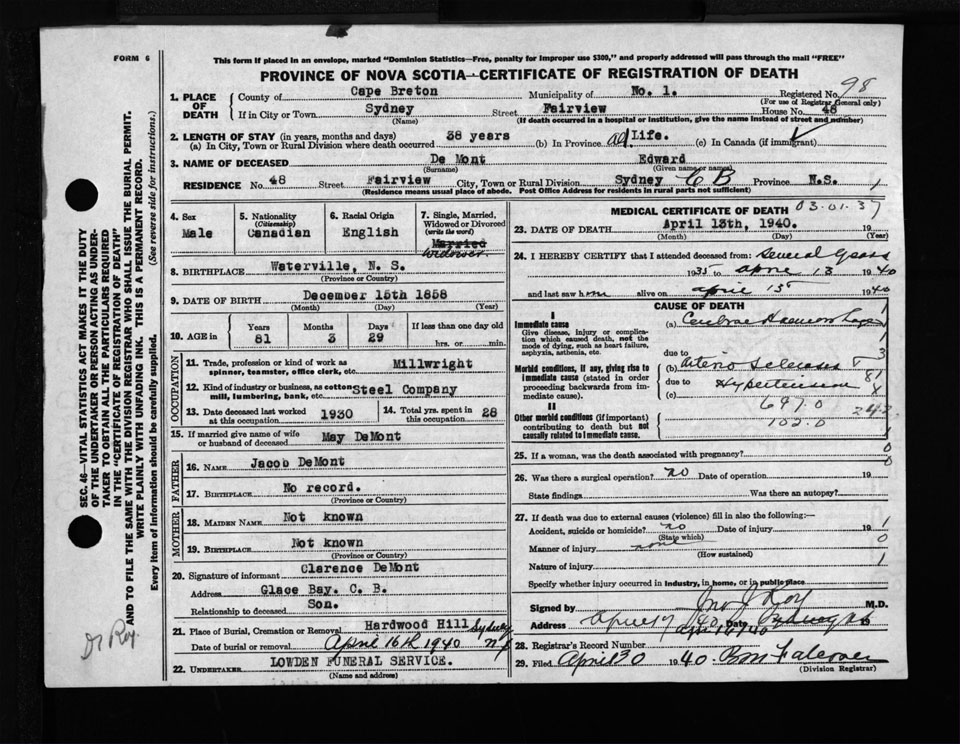 FORM 6
This form if placed in an envelope, marked "Dominion Statistics—Free, penalty for improper use $300," and properly addressed will pass through the mail "FREE"
PROVINCE OF NOVA SCOTIA—CERTIFICATE OF REGISTRATION OF DEATH
98
1. PLACE OF DEATH
County of Cape Breton Municipality of No. 1. Registered No.
(For use of Registrar General only)
If in City or Town Sydney Street Fairview House No. 48
(Name) (If death occurred in a hospital or institution, give the name instead of street and number)
2. LENGTH OF STAY (in years, months and days)
(a) In City, Town or Rural Division where death occurred 38 years (b) In Province all Life. (c) In Canada (if immigrant)
3. NAME OF DECEASED De Mont Edward
(Surname) (Given name or names)
RESIDENCE No. 48 Street Fairview City, Town or Rural Division Sydney C B Province N.S. 1
(Residence means usual place of abode. Post Office Address for residents in rural parts not sufficient)
4. Sex Male
5. Nationality (Citizenship) Canadian
6. Racial Origin English
7. Single, Married, Widowed or Divorced (write the word) Married
Widower
8. BIRTHPLACE Waterville, N. S.
(Province or Country)
9. DATE OF BIRTH December 15th 1858
(Month) (Day) (Year)
10. AGE in Years 81 Months 3 Days 29 If less than one day old hrs. or min.
OCCUPATION
11. Trade, profession or kind of work as spinner, teamster, office clerk, etc. Millwright
12. Kind of industry or business, as cotton mill, lumbering, bank, etc. Steel Company
13. Date deceased last worked at this occupation 1930 14. Total yrs. spent in this occupation 28
15. If married give name of wife or husband of deceased May DeMont
FATHER
16. NAME Jacob DeMont
17. BIRTHPLACE No record.
(Province or Country)
MOTHER
18. MAIDEN NAME Not known
19. BIRTHPLACE Not known
(Province or Country)
20. Signature of informant Clarence DeMont
Address Glace Bay. C. B.
Relationship to deceased Son.
21. Place of Burial, Cremation or Removal Hardwood Hill Sydney
Date of burial or removal April 16th 1940 N S
22. UNDERTAKER LOWDEN FUNERAL SERVICE.
(Name and address)
MEDICAL CERTIFICATE OF DEATH 03.01.37
23. DATE OF DEATH April 13th, 1940. 19
(Month) (Day) (Year)
24. I HEREBY CERTIFY that I attended deceased from: Several Years
1935 to April 13 1940
and last saw him alive on April 13 1940
CAUSE OF DEATH
I
Immediate cause
Give disease, injury or complication which caused death, not the mode of dying, such as heart failure, asphyxia, asthenia, etc.
(a) Cerebral Haemorrhage
due to
Morbid conditions, if any, giving rise to immediate cause (stated in order proceeding backwards from immediate cause).
(b) Arterio Sclerosis
due to Hypertension
(c)
II
Other morbid conditions (if important) contributing to death but not causally related to immediate cause.
102.0
25. If a woman, was the death associated with pregnancy?
26. Was there a surgical operation? no Date of operation 19
State findings Was there an autopsy?
27. If death was due to external causes (violence) fill in also the following:—
Accident, suicide or homicide? no Date of injury 19
(State which)
Manner of injury none
(How sustained)
Nature of injury
Specify whether injury occurred in industry, in home, or in public place
Signed by Jno J Roy M.D.
Address Date
28. Registrar's Record Number
29. Filed April 30 1940.
(Division Registrar)
SEC. 46—VITAL STATISTICS ACT MAKES IT THE DUTY
OF THE UNDERTAKER OR PERSON ACTING AS UNDER-
TAKER TO OBTAIN ALL THE PARTICULARS REQUIRED
IN THE "CERTIFICATE OF REGISTRATION OF DEATH"
AND TO FILE THE SAME WITH THE DIVISION REGISTRAR WHO SHALL ISSUE THE BURIAL PERMIT.
WRITE PLAINLY WITH UNFADING INK. THIS IS A PERMANENT RECORD.
Every item of information should be carefully supplied. (See reverse side for instructions.)
Dr Roy